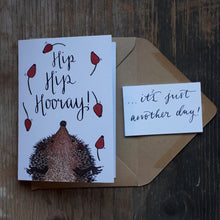 Hip
Hip
Hooray!
...it's just
another day!